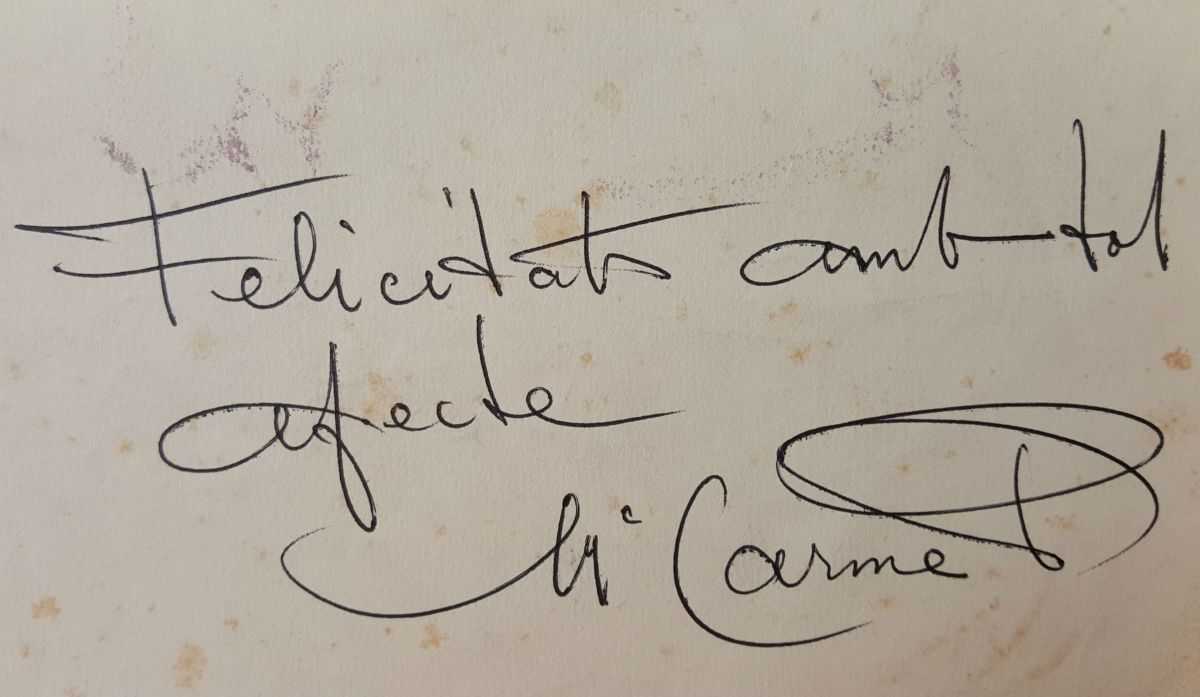 Felicitats amb tot
afecte
Mª Carme